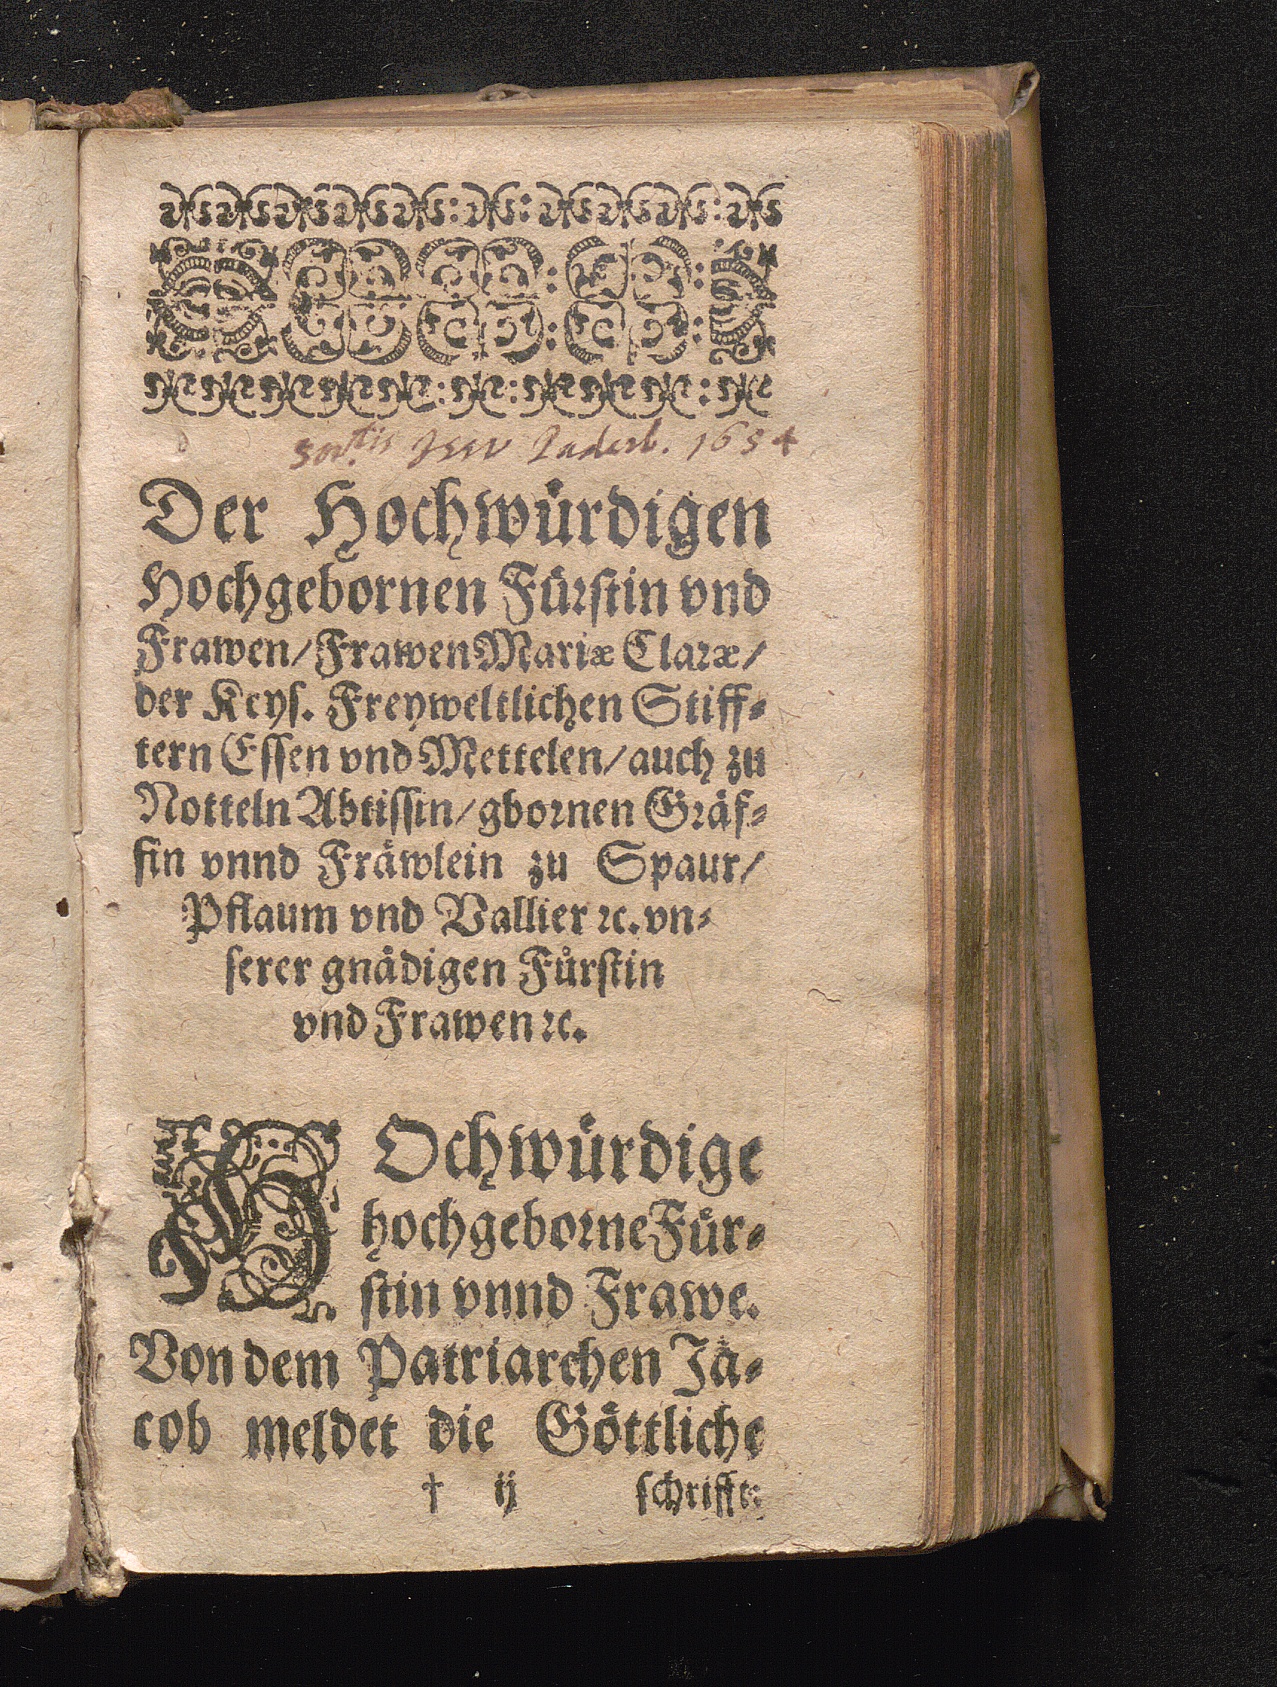 Jesu Paderb. 1654
Der Hochwürdigen
Hochgebornen Fürstin vnd
Frawen/ Frawen Mariæ Claræ/
der Keys. Freyweltlichen Stiff-
tern Essen vnd Mettelen/ auch zu
Notteln Abtissin/ gbornen Gräf-
fin vnnd Fräwlein zu Spaur/
Pflaum vnd Vallier ꝛc. vn-
serer gnådigen Fůrstin
vnd Frawen ꝛc.
HOchwürdige
hochgeborne Für-
stin vnnd Frawe.
Von dem Patriarchen Ja-
cob meldet die Göttliche
† ij schrifft: